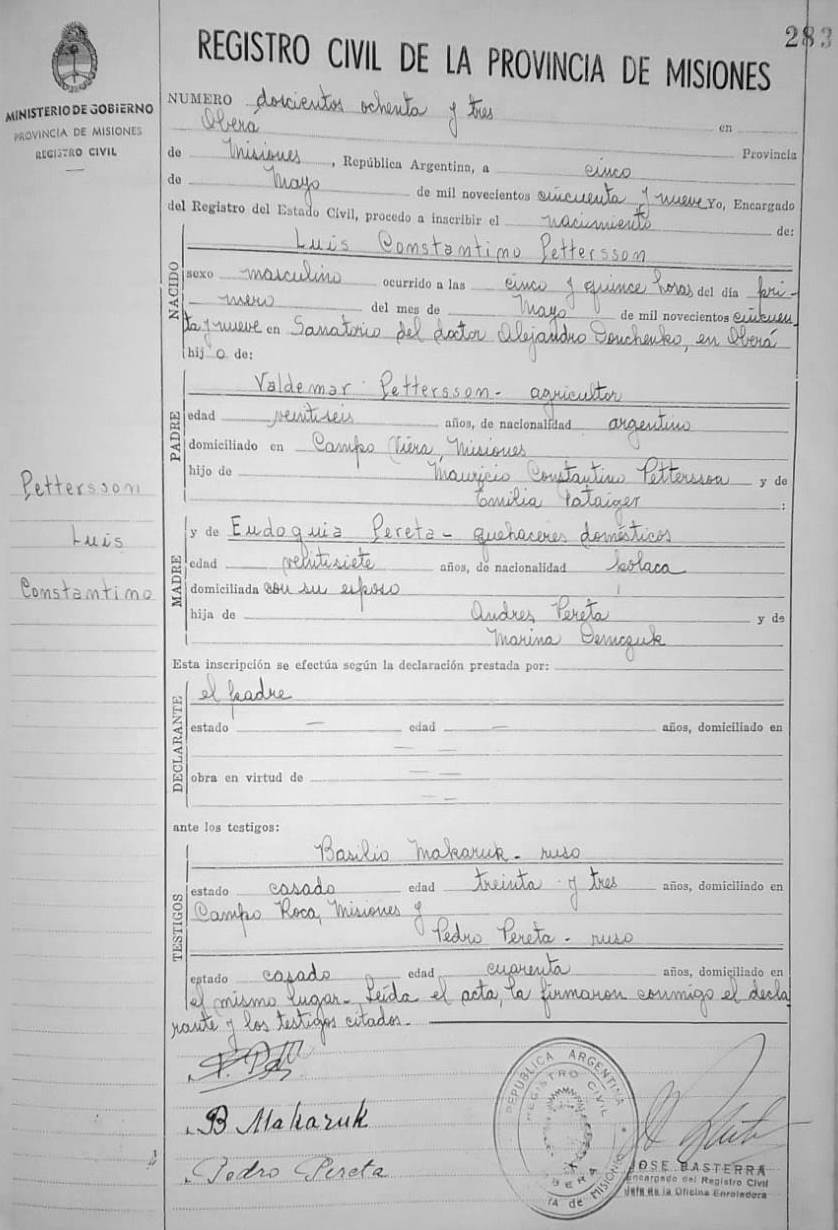 283
REGISTRO CIVIL DE LA PROVINCIA DE MISIONES
MINISTERIO DE GOBIERNO
PROVINCIA DE MISIONES
REGISTRO CIVIL
NUMERO doscientos ochenta y tres
Oberá en
de Misiones, República Argentina, a cinco Provincia
de Mayo de mil novecientos cincuenta y nueve Yo, Encargado
del Registro del Estado Civil, procedo a inscribir el nacimiento de:
NACIDO
Luis Constantino Pettersson
sexo masculino ocurrido a las cinco y quince horas del día pri-
mero del mes de Mayo de mil novecientos cincuen
ta y nueve en Sanatorio del doctor Alejandro Douchenko, en Oberá
hijo de:
PADRE
Valdemar Pettersson - agricultor
edad veintiseis años, de nacionalidad argentino
domiciliado en Campo Viera, Misiones
hijo de Mauricio Constantino Pettersson y de
Emilia :
Pettersson
Luis
Constantino
MADRE
y de Eudoquia Pereta - quehaceres domésticos
edad veintisiete años, de nacionalidad polaca
domiciliada con su esposo
hija de Andres Pereta y de
Marina Demczuk
Esta inscripción se efectúa según la declaración prestada por:
DECLARANTE
el padre
estado — edad — años, domiciliado en
— —
obra en virtud de — —
— —
ante los testigos:
TESTIGOS
Basilio Makaruk - ruso
estado casado edad treinta y tres años, domiciliado en
Campo Roca, Misiones y
Pedro Pereta - ruso
estado casado edad cuarenta años, domiciliado en
el mismo lugar - Leída el acta, la firmaron conmigo el decla
rante y los testigos citados. -
B Makaruk
Pedro Pereta
REPUBLICA ARGENTINA
REGISTRO CIVIL
OBERA
JOSE BASTERRA
Encargado del Registro Civil
Jefe de la Oficina Enroladora